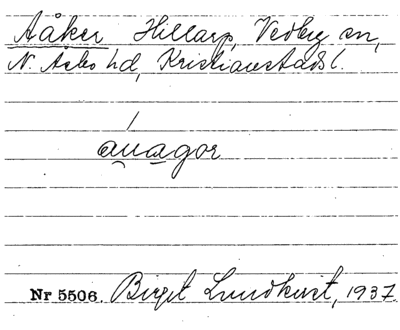 Aåker Hillarp, Vedby sn,
N. Åsbo hd, Kristianstads l.
áuagor
Nr 5506. Birgit Lundkvist, 1937